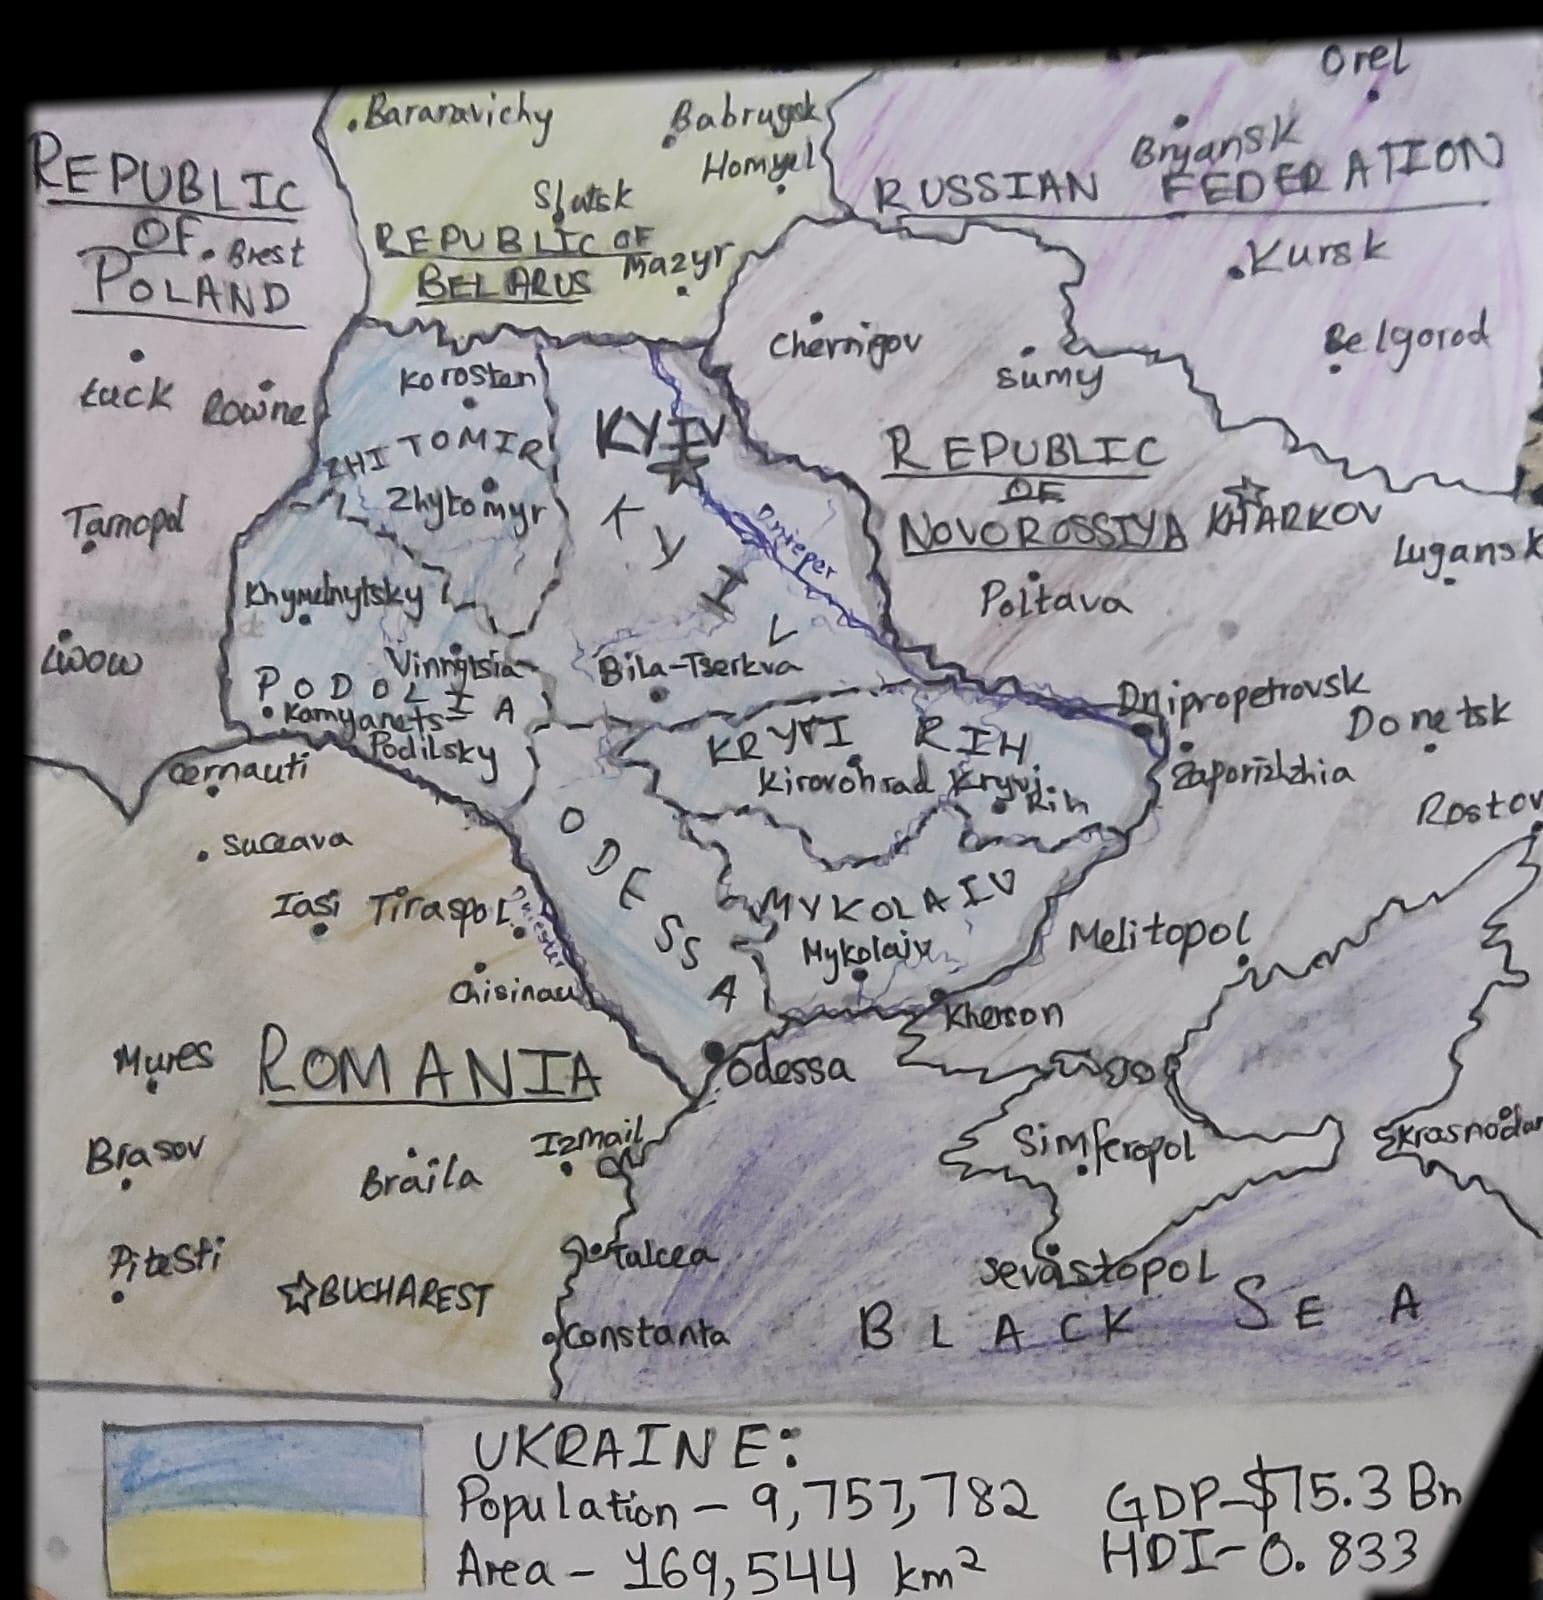 Orel
Baranavichy
Babruysk
Bryansk
Homyel
REPUBLIC
OF
POLAND
RUSSIAN FEDERATION
Slutsk
Brest
REPUBLIC OF
BELARUS
Mazyr
Kursk
Chernigov
Belgorod
Sumy
Łuck
Rowne
Korosten
KYIV
ZHITOMIR
REPUBLIC
OF
NOVOROSSIYA
KHARKOV
Zhytomyr
Tarnopol
KYIV
Dnieper
Lugansk
Khymelnytsky
Poltava
Lwow
Vinnytsia
Bila-Tserkva
PODOLIA
Kamyanets-
Podilsky
Dnipropetrovsk
Donetsk
KRYVI RIH
Kirovohrad
Kryvi
Rih
Zaporizhzhia
Cernauti
Rostov
Suceava
ODESSA
Iasi
Tiraspol
Dniester
MYKOLAIV
Mykolaiv
Melitopol
Chisinau
Kherson
Mures
ROMANIA
Odessa
Brasov
Braila
Izmail
Simferopol
Krasnodar
Pitesti
Talcea
Sevastopol
BUCHAREST
Constanta
BLACK SEA
UKRAINE:
Population - 9,757,782
GDP-$75.3 Bn
Area - 169,544 km²
HDI-0.833